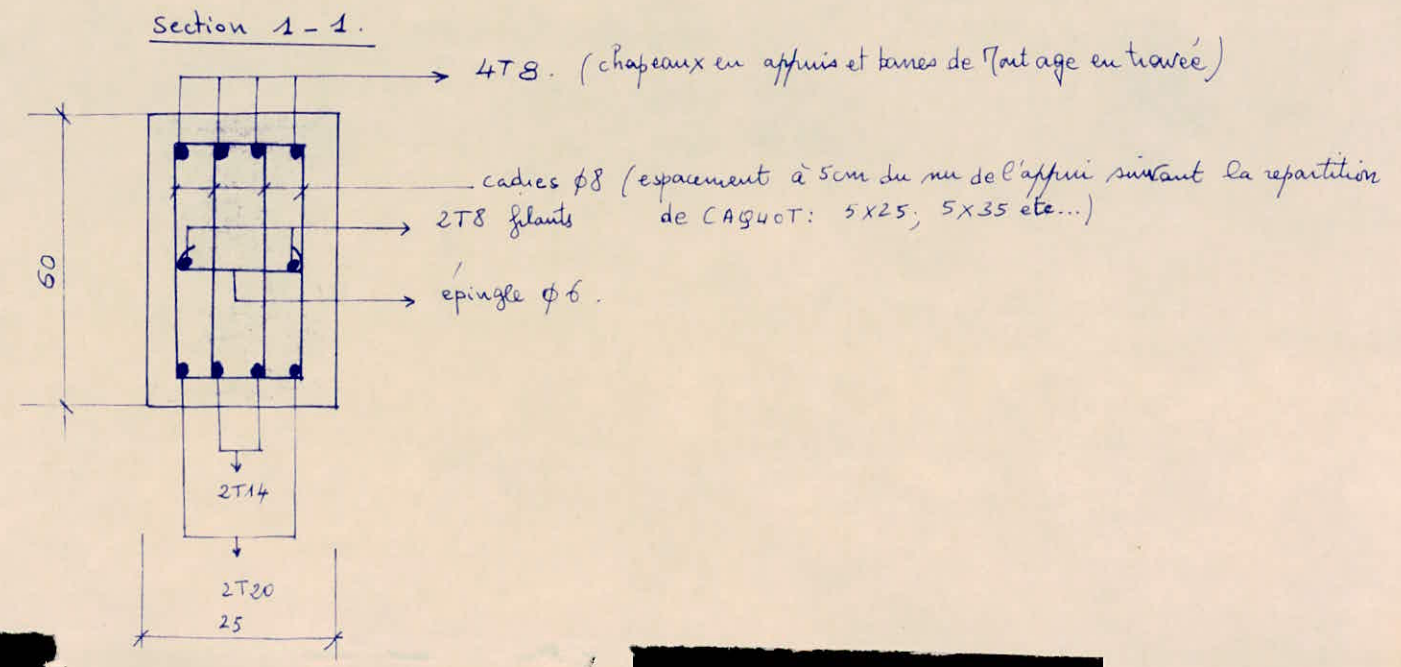 Section 1-1.
4T8. (chapeaux en appuis et barres de Montage en travée)
cadres ϕ8 (espacement à 5cm du nu de l'appui suivant la repartition
de CAQUOT: 5x25; 5x35 etc...)
2T8 filants
60
épingle ϕ6.
2T14
2T20
25